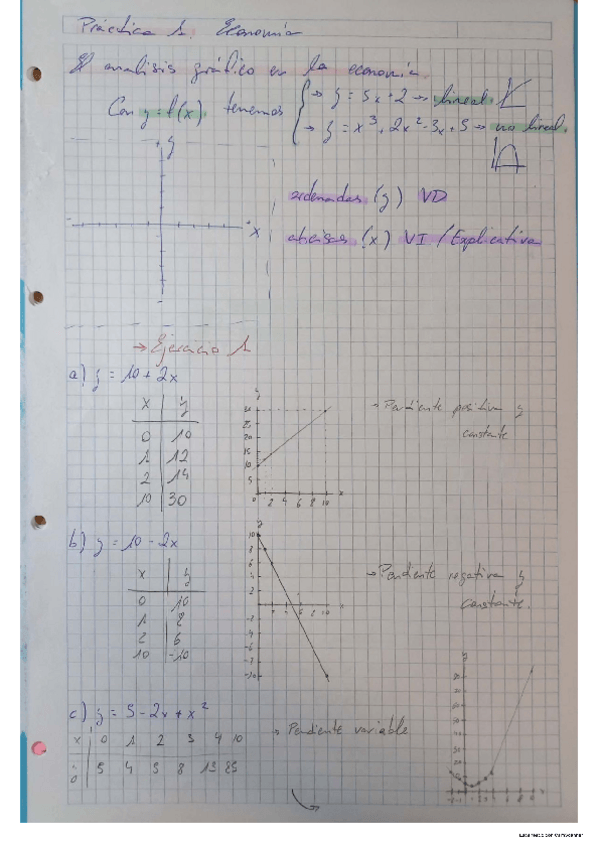 Práctica 1. Economía
El analisis gráfico en la economía.
Con y=f(x) tenemos
→ y = 5x+2 → lineal.
→ y = x³+2x²-3x+5 → no lineal.
y
x
ordenadas (y) VD
abcisas (x) VI / Explicativa
→ Ejercicio 1
a) y = 10+2x
x | y
0 | 10
1 | 12
2 | 14
10 | 30
y
30
25
20
15
10
5
0 2 4 6 8 10 x
→ Pendiente positiva y
constante
b) y = 10-2x
x | y
0 | 10
1 | 8
2 | 6
10 | -10
y
10
8
6
4
2
2 10 x
-2
-4
-6
-8
-10
→ Pendiente negativa y
constante.
c) y = 5-2x+x²
x | 0 1 2 3 4 10
y | 5 4 5 8 13 85
→ Pendiente variable